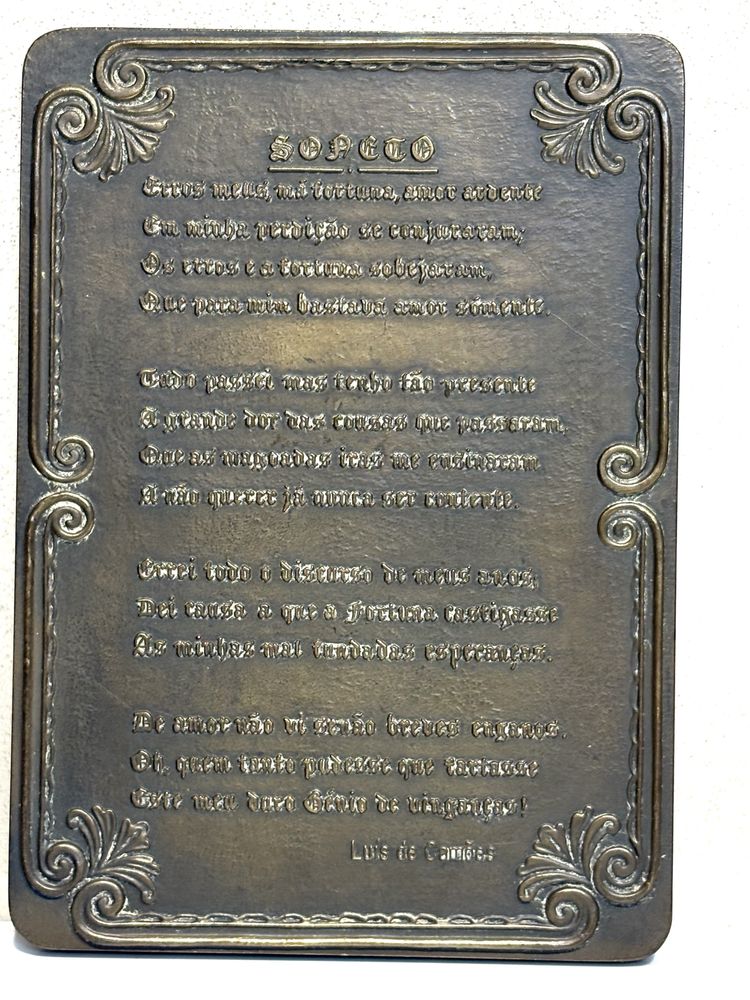 SONETO
Erros meus, má fortuna, amor ardente
Em minha perdição se conjuraram;
Os erros e a fortuna sobejaram,
Que para mim bastava amor sòmente.
Tudo passei mas tenho tão presente
A grande dor das cousas que passaram,
Que as magoadas iras me ensinaram
A não querer já nunca ser contente.
Errei todo o discurso de meus anos;
Dei causa a que a Fortuna castigasse
As minhas mal fundadas esperanças.
De amor não vi senão breves enganos.
Oh, quem tanto podesse que fartasse
Este meu duro Génio de vinganças!
Luis de Camões